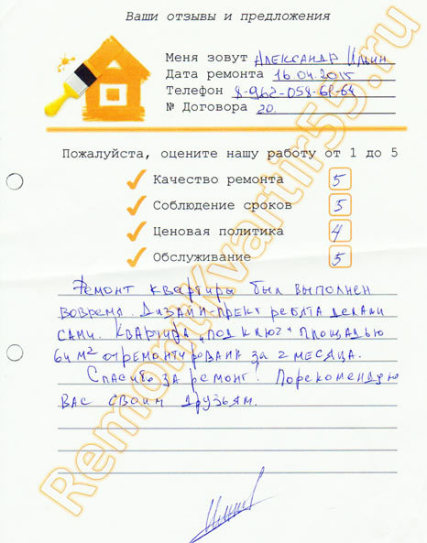 Ваши отзывы и предложения
Меня зовут Александр Илин
Дата ремонта 16.04.2015
Телефон 8-962-054-61-64
№ Договора 20.
Пожалуйста, оцените нашу работу от 1 до 5
Качество ремонта 5
Соблюдение сроков 5
Ценовая политика 4
Обслуживание 5
Ремонт квартиры был выполнен
вовремя. Дизайн-проект ребята делали
сами. Квартира "под ключ" площадью
64 м² отремонтировали за 2 месяца.
Спасибо за ремонт! Порекомендую
вас своим друзьям.
RemontKvartir55.ru